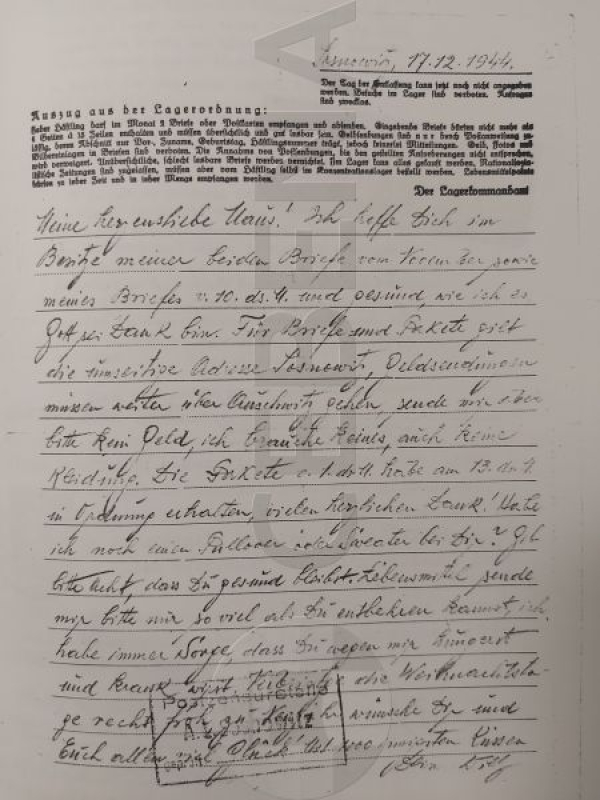 Sosnowitz, 17.12.1944.
Der Tag der Entlassung kann jetzt noch nicht angegeben
werden. Besuche im Lager sind verboten. Anfragen
sind zwecklos.
Auszug aus der Lagerordnung:
Jeder Häftling darf im Monat 2 Briefe oder Postkarten empfangen und absenden. Eingehende Briefe dürfen nicht mehr als
4 Seiten à 15 Zeilen enthalten und müssen übersichtlich und gut lesbar sein. Geldsendungen sind nur durch Postanweisung zu-
lässig, deren Abschnitt nur Vor-, Zuname, Geburtstag, Häftlingsnummer trägt, jedoch keinerlei Mitteilungen. Geld, Fotos und
Bildereinlagen in Briefen sind verboten. Die Annahme von Postsendungen, die den gestellten Anforderungen nicht entsprechen,
wird verweigert. Unübersichtliche, schlecht lesbare Briefe werden vernichtet. Im Lager kann alles gekauft werden. Nationalsozia-
listische Zeitungen sind zugelassen, müssen aber vom Häftling selbst im Konzentrationslager bestellt werden. Lebensmittelpakete
dürfen zu jeder Zeit und in jeder Menge empfangen werden.
Der Lagerkommandant
Meine herzensliebe Maus! Ich hoffe Dich im
Besitze meiner beiden Briefe vom November sowie
meines Briefes v. 10. ds. M. und gesund, wie ich es
Gott sei Dank bin. Für Briefe und Pakete gilt
die umseitige Adresse Sosnowitz, Geldsendungen
müssen weiter über Auschwitz gehen, sende mir aber
bitte kein Geld, ich brauche keines, auch keine
Kleidung. Die Pakete v. 1. ds. M. habe am 13. ds. M.
in Ordnung erhalten, vielen herzlichen Dank! Habe
ich noch einen Pullover oder Sweater bei Dir? Gib
bitte Acht, dass Du gesund bleibst. Lebensmittel sende
mir bitte nur so viel als Du entbehren kannst, ich
habe immer Sorge, dass Du wegen mir hungerst
und krank wirst. die Weihnachtsta-
ge recht froh zu wünsche Dir und
Euch allen viel Glück! Mit 1000 innigsten Küssen
Dein
Postzensurstelle